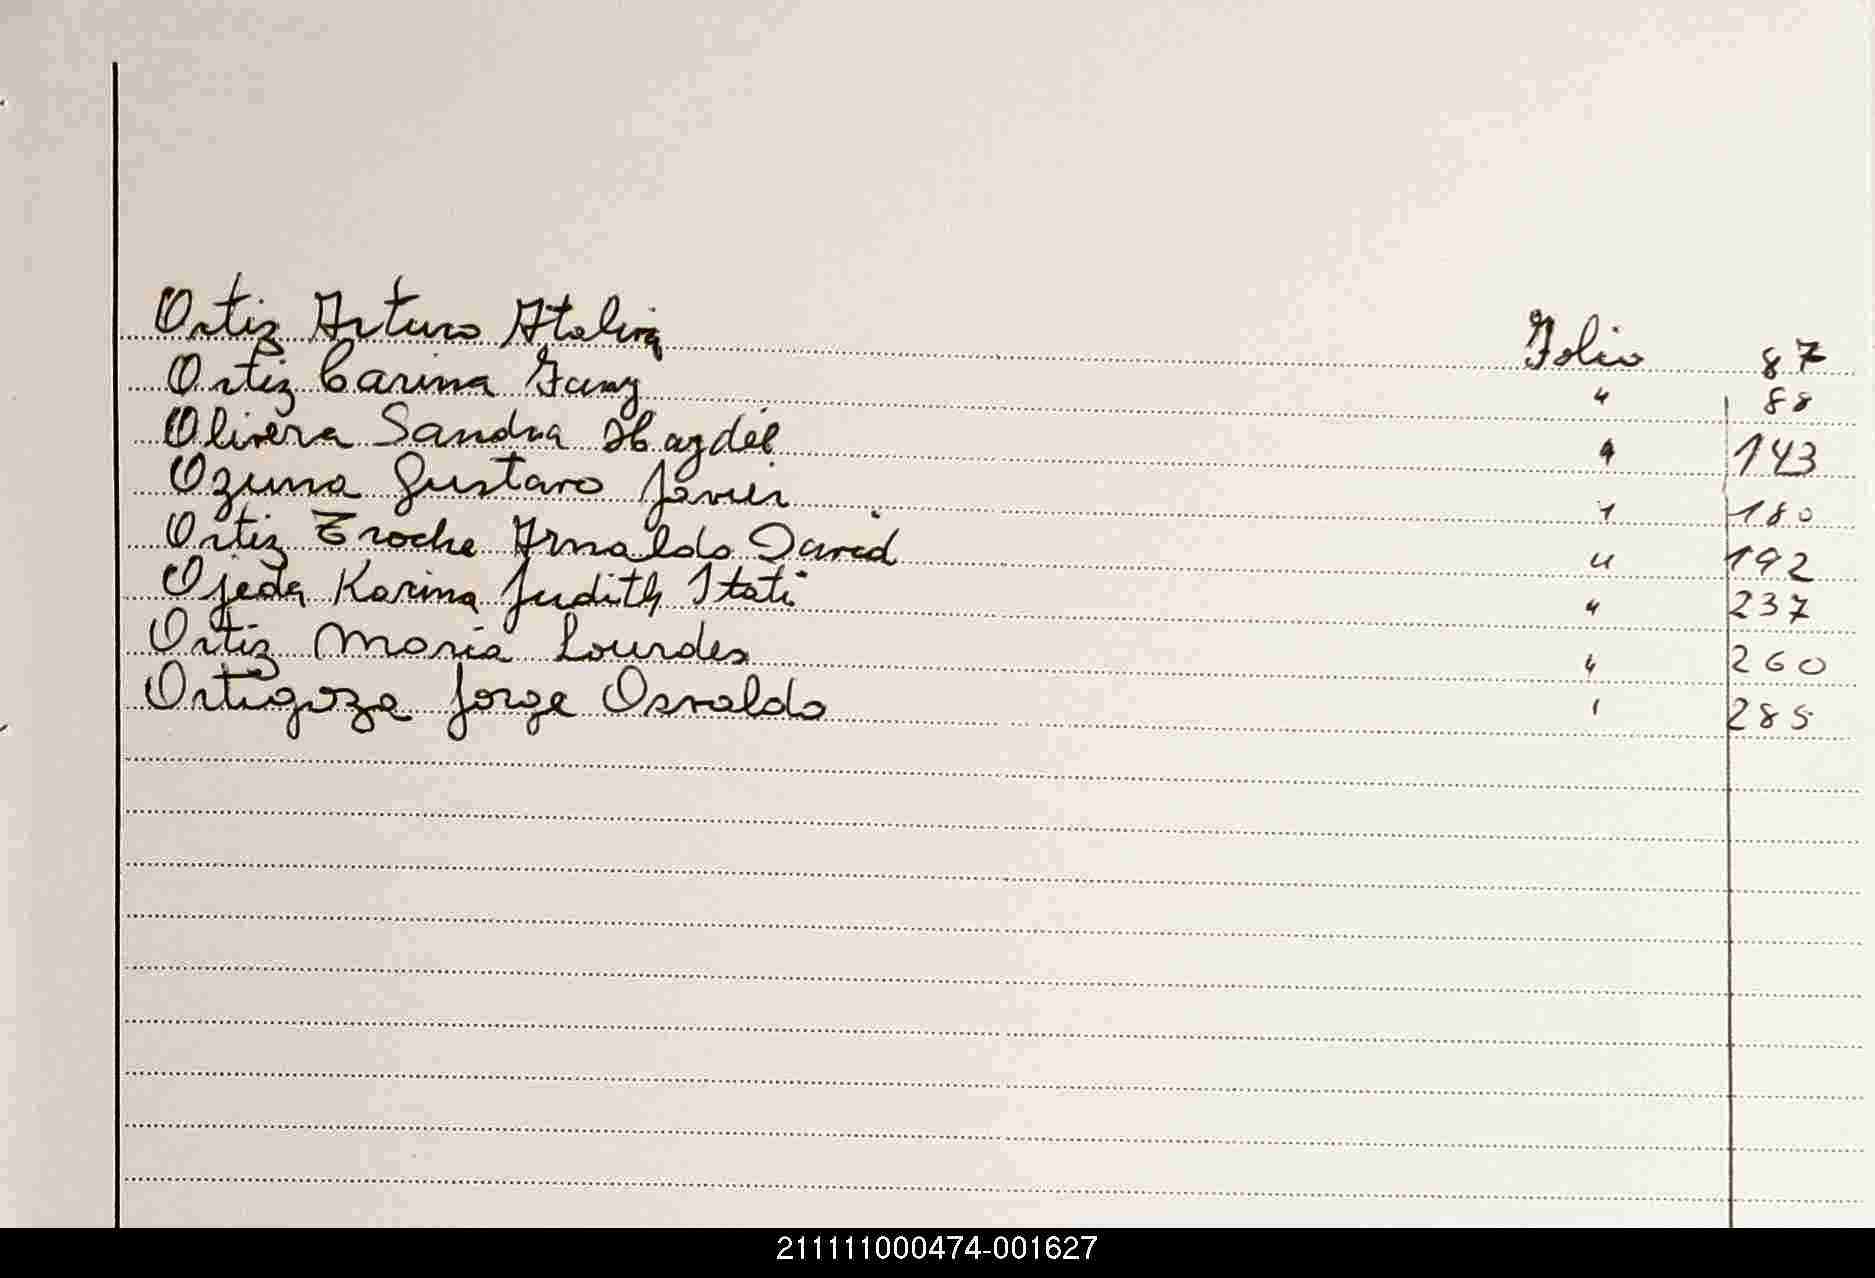 Ortiz Arturo Ataliva Folio 87
Ortiz Carina Fany " 88
Olivera Sandra Haydeé " 143
Ozuna Gustavo Javier " 180
Ortiz Troche Arnaldo David " 192
Ojeda Karina Judith Itati " 237
Ortiz Maria Lourdes " 260
Ortigoza Jorge Osvaldo " 285
211111000474-001627